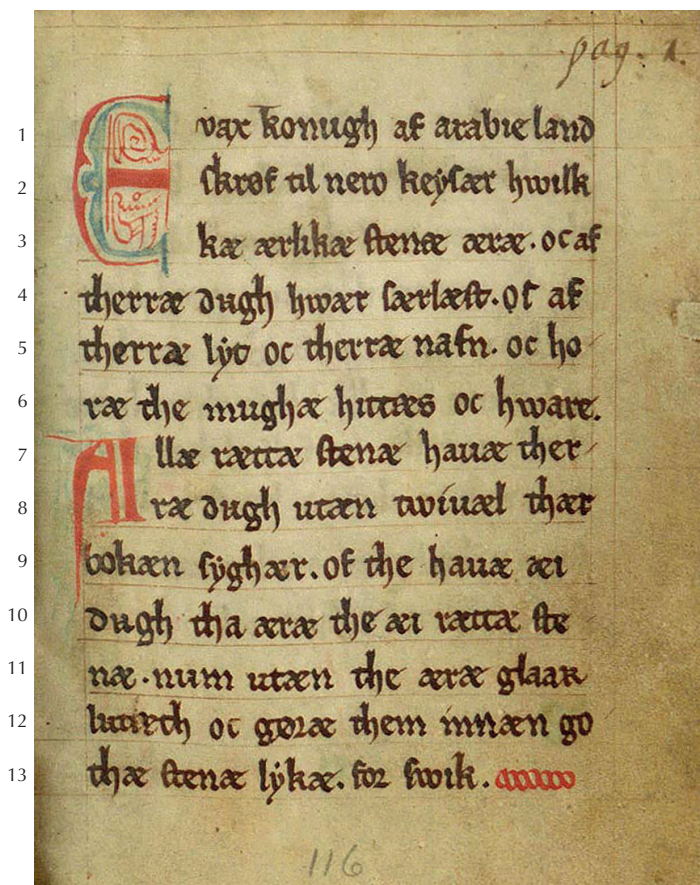 pag. 1.
1 Evax konugh af arabieland
2 skrøf til nero keysær hwilk
3 kæ ærlikæ stenæ æræ. oc af
4 therræ dugh hwær særlæst. oc af
5 therræ lyt oc therræ nafn. oc ho
6 ræ the mughæ hittæs oc hware.
7 Allæ rættæ stenæ hauæ ther
8 ræ dugh utæn twiuæl thær
9 bokæn syghær. of the hauæ æi
10 dugh tha æræ the æi rættæ ste
11 næ. num utæn the æræ glaar
12 lutæth oc gøræ them innæn go
13 thæ stenæ lykæ. for swik.
116